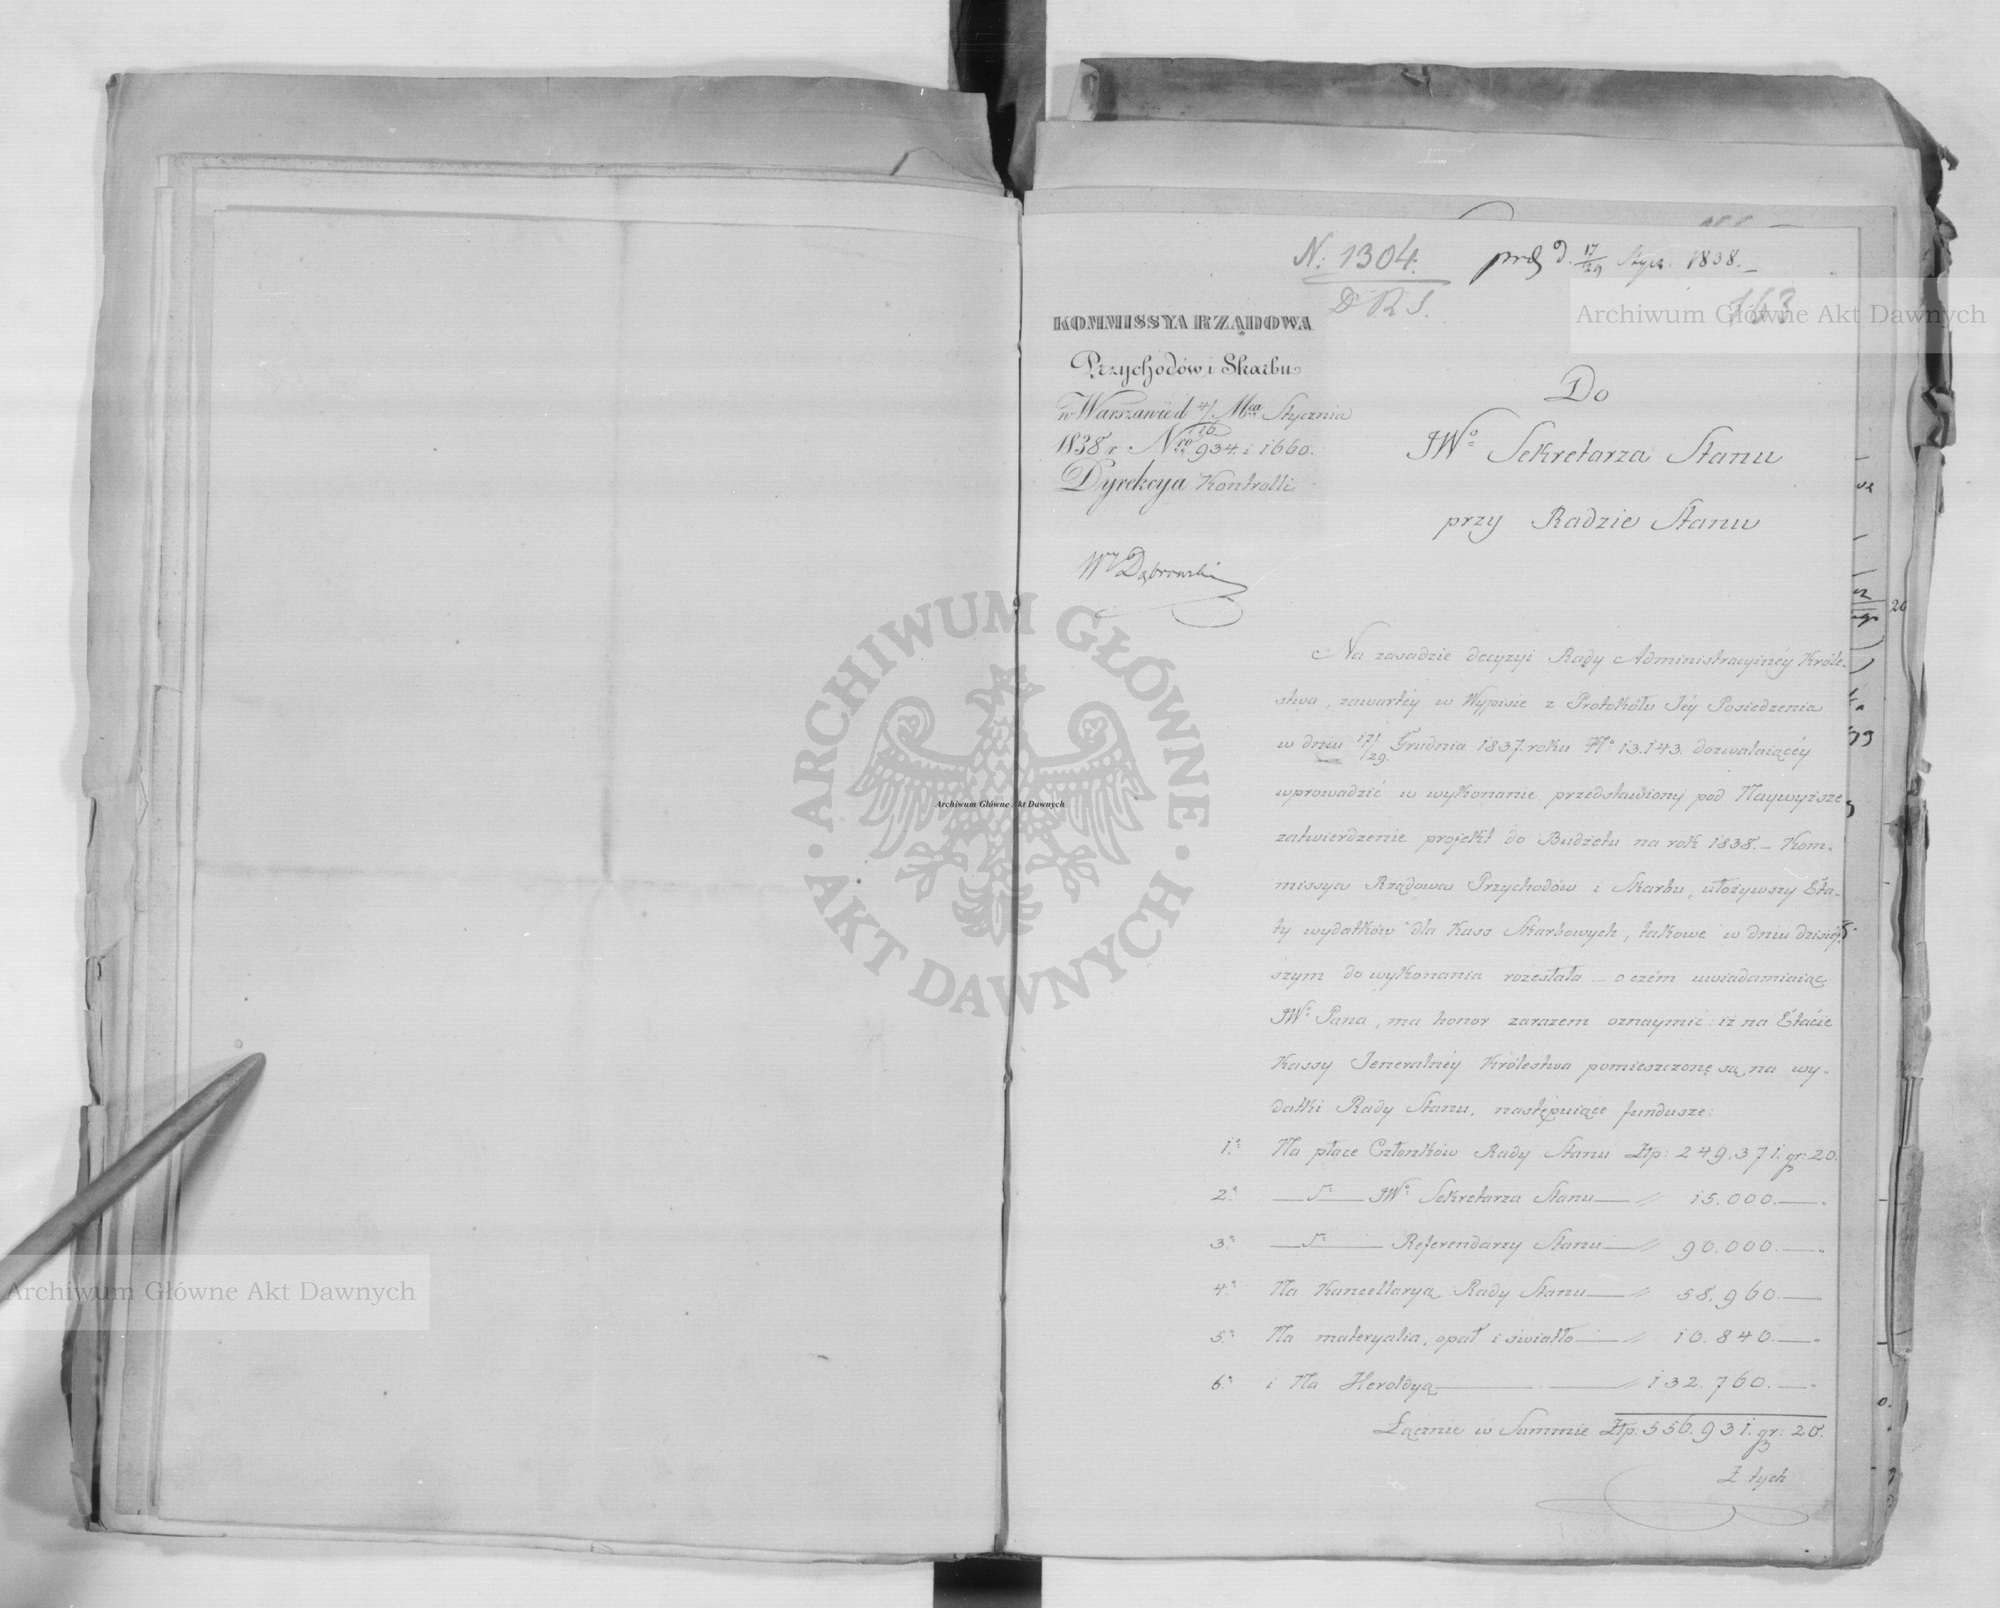 N. 1304.
D. R. S.
prs d. 17/29 Stycz. 1838.
163
KOMMISSYA RZĄDOWA
Przychodów i Skarbu
w Warszawie d 4/16 Mca Stycznia
1838 r. Nro 934. i 1660.
Dyrekcya Kontrolli
Wny Dąbrowski
Do
JWo Sekretarza Stanu
przy Radzie Stanu
Na zasadzie decyzyi Rady Administracyinéy Króle-
stwa, zawartéy w Wypisie z Protokółu Jéy Posiedzenia
w dniu 17/29. Grudnia 1837. roku No 13.143. dozwalaiącéy
wprowadzić w wykonanie przedstawiony pod Naywyższe
zatwierdzenie projekt do Budżetu na rok 1838. – Kom-
missya Rządowa Przychodów i Skarbu, ułożywszy Eta-
ty wydatków dla Kass Skarbowych, takowe w dniu dzisiéy-
szym do wykonania rozesłała – o czém uwiadamiaiąc
JWo Pana, ma honor zarazem oznaymić: iż na Etacie
Kassy Jeneralnéy Królestwa pomieszczonę są na wy-
datki Rady Stanu, następuiące fundusze:
1.o Na płace Członków Rady Stanu Złp: 249.371. gr: 20.
2.o — JWo Sekretarza Stanu — " 15.000. — "
3.o — Referendarzy Stanu — " 90.000. — "
4.o Na Kancellaryą Rady Stanu — " 58.960. —
5.o Na materyalia, opał i światło — " 10.840. — "
6.o i Na Heroldyą — " 132.760. — "
Łącznie w Summie Złp: 556.931. gr: 20.
Z tych
Archiwum Główne Akt Dawnych
Archiwum Główne Akt Dawnych
Archiwum Główne Akt Dawnych
ARCHIWUM GŁÓWNE
AKT DAWNYCH